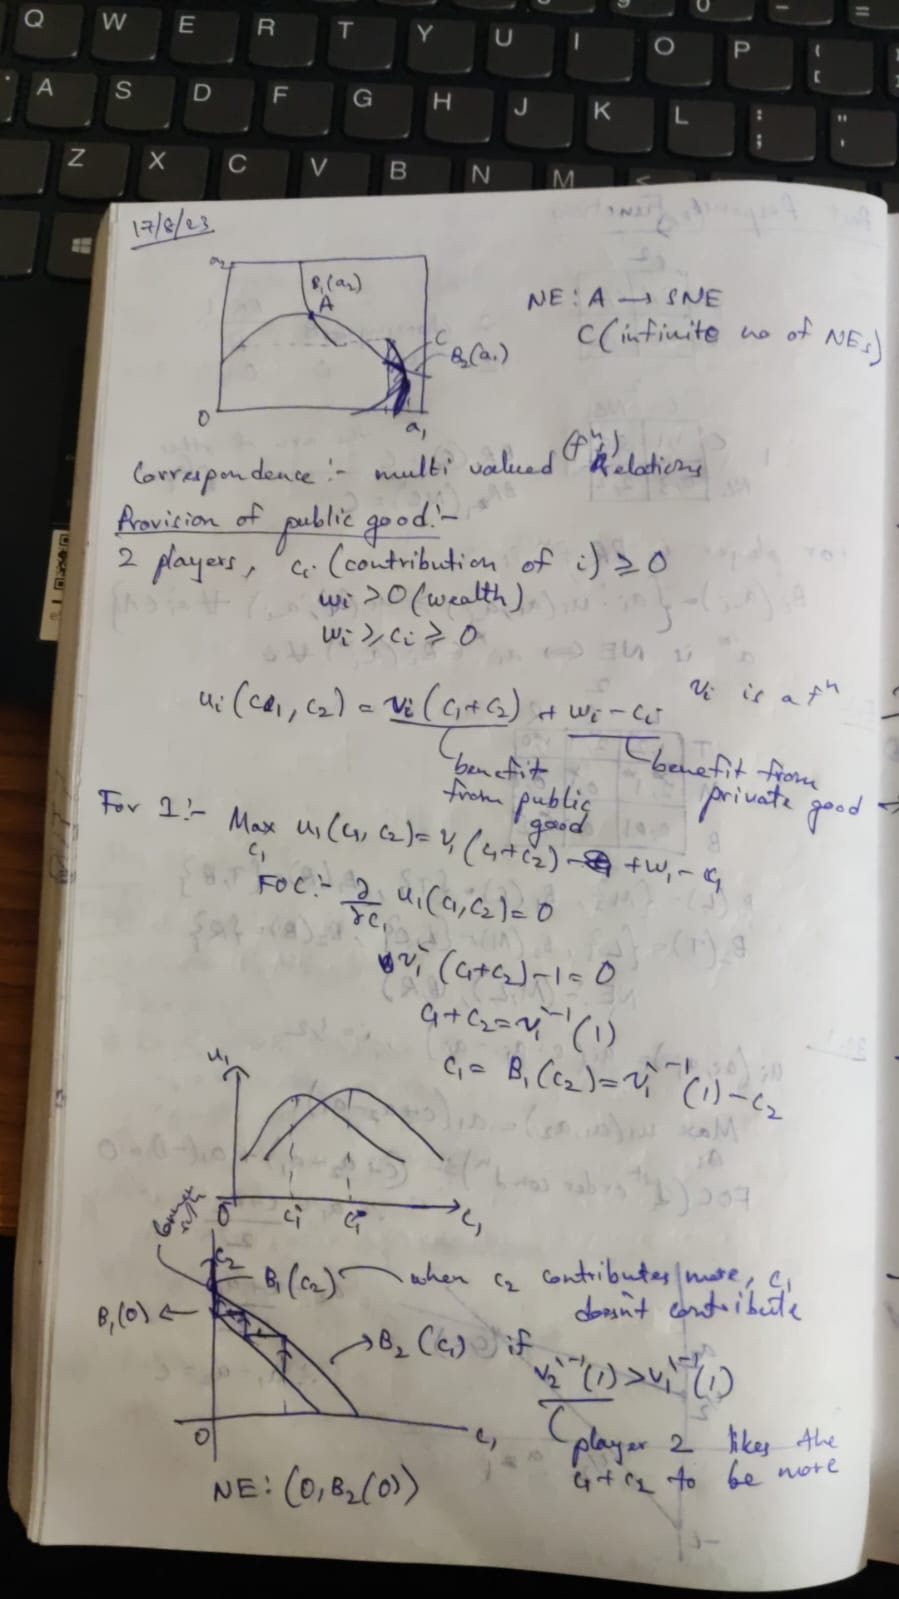 Q W E R T Y U I O P
A S D F G H J K L ; "
Z X C V B N M <
17/8/23
a₂
B₁(a₂)
A
C
B₂(a₁)
0
a₁
NE: A → SNE
C (infinite no of NEs)
Correspondence :- multi valued (fⁿs) Relations
Provision of public good :-
2 players, cᵢ (contribution of i) ≥ 0
wᵢ > 0 (wealth)
wᵢ ≥ cᵢ ≥ 0
uᵢ(c₁, c₂) = vᵢ(c₁+c₂) + wᵢ - cᵢ
vᵢ is a fⁿ
benefit from public good
benefit from private good
For 1 :- Max u₁(c₁, c₂) = v₁(c₁+c₂) + w₁ - c₁
c₁
FOC :- ∂/∂c₁ u₁(c₁, c₂) = 0
v₁'(c₁+c₂) - 1 = 0
c₁+c₂ = v₁'⁻¹(1)
c₁ = B₁(c₂) = v₁'⁻¹(1) - c₂
u₁
0
c₁
c₂
B₁(c₂)
when c₂ contributes more, c₁
doesn't contribute
B₁(0) ←
→ B₂(c₁) if
v₂'⁻¹(1) > v₁'⁻¹(1)
player 2 likes the
c₁+c₂ to be more
0
c₁
NE: (0, B₂(0))